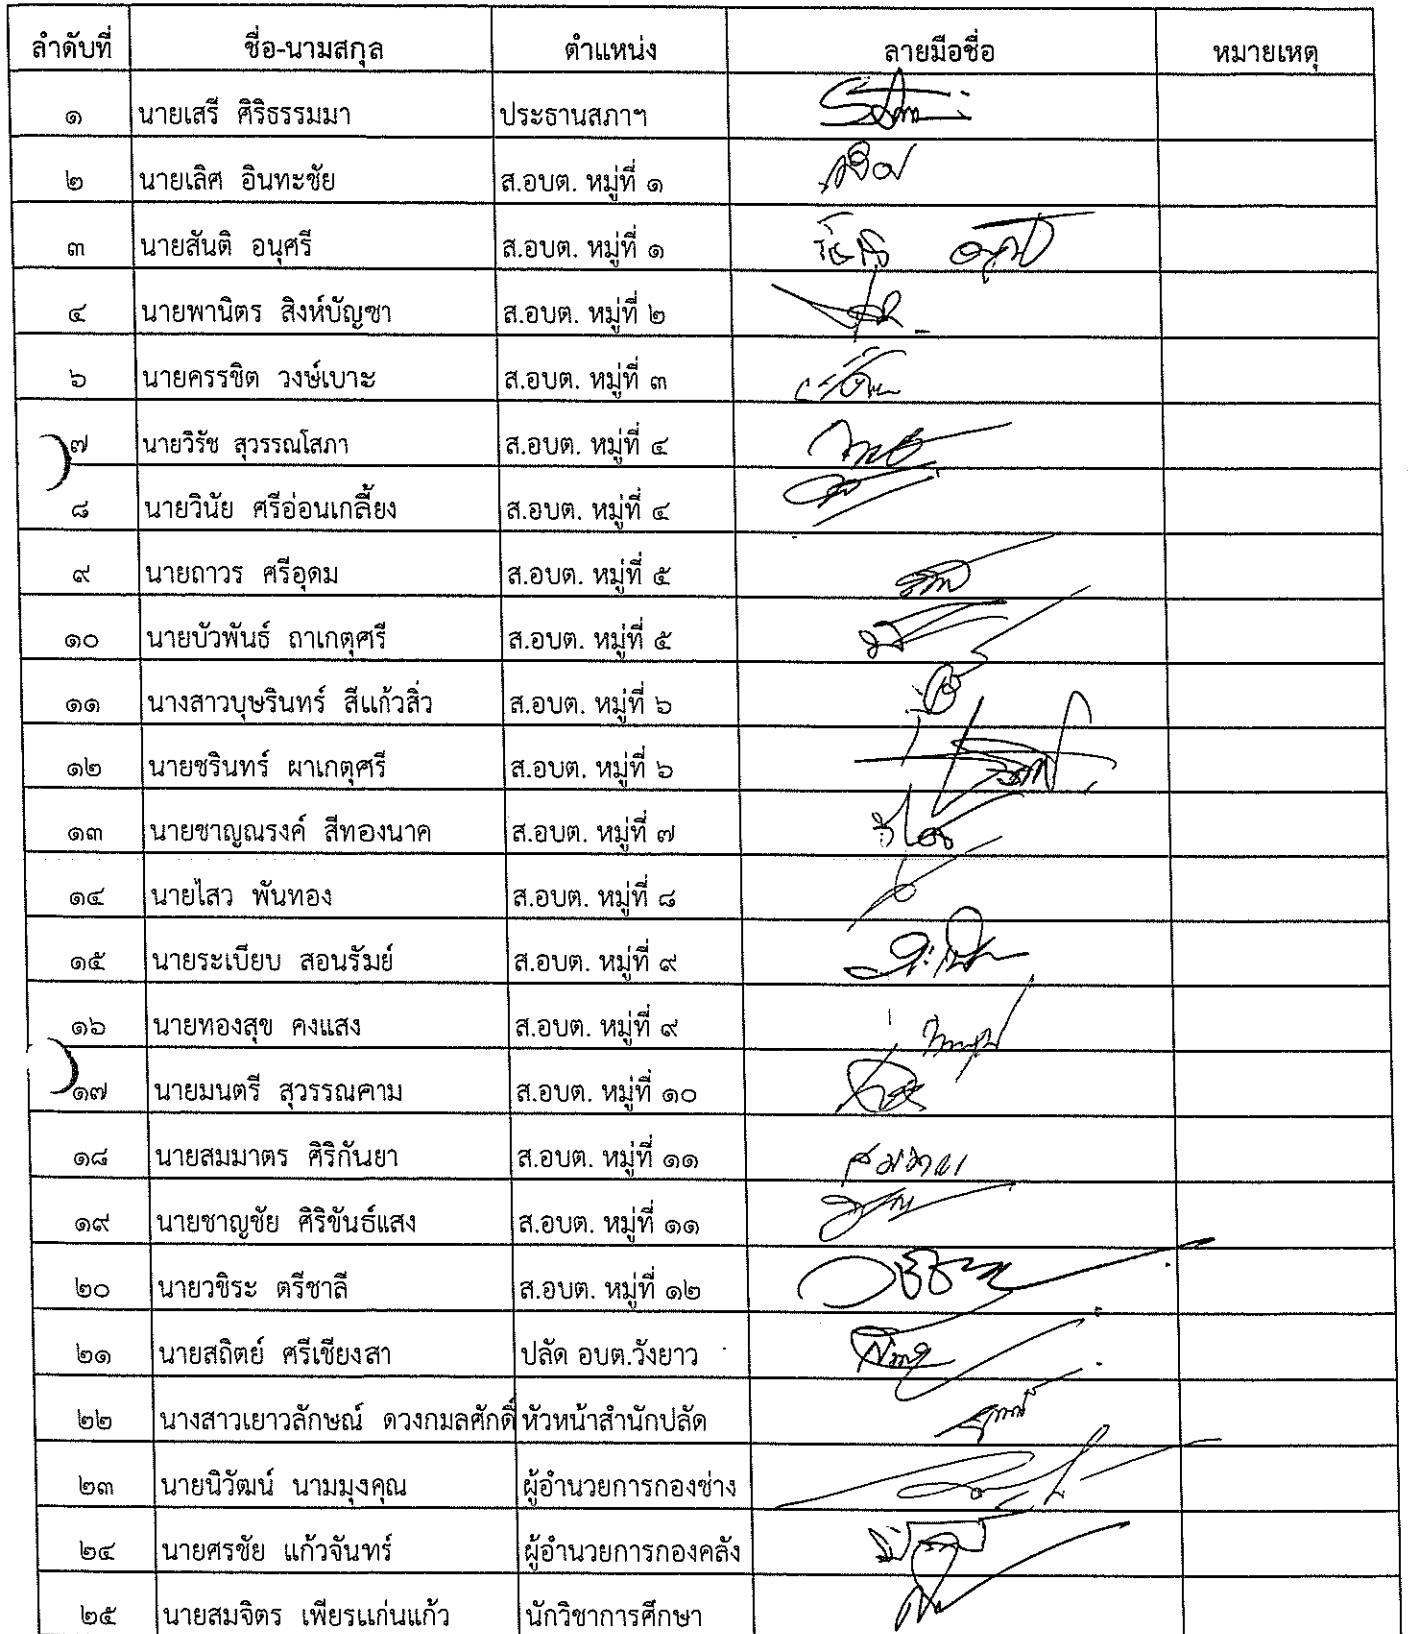 ลำดับที่ ชื่อ-นามสกุล ตำแหน่ง ลายมือชื่อ หมายเหตุ
๑ นายเสรี ศิริธรรมมา ประธานสภาฯ
๒ นายเลิศ อินทะชัย ส.อบต. หมู่ที่ ๑
๓ นายสันติ อนุศรี ส.อบต. หมู่ที่ ๑
๔ นายพานิตร สิงห์บัญชา ส.อบต. หมู่ที่ ๒
๖ นายครรชิต วงษ์เบาะ ส.อบต. หมู่ที่ ๓
๗ นายวิรัช สุวรรณโสภา ส.อบต. หมู่ที่ ๔
๘ นายวินัย ศรีอ่อนเกลี้ยง ส.อบต. หมู่ที่ ๔
๙ นายถาวร ศรีอุดม ส.อบต. หมู่ที่ ๕
๑๐ นายบัวพันธ์ ถาเกตุศรี ส.อบต. หมู่ที่ ๕
๑๑ นางสาวบุษรินทร์ สีแก้วสิ่ว ส.อบต. หมู่ที่ ๖
๑๒ นายชรินทร์ ผาเกตุศรี ส.อบต. หมู่ที่ ๖
๑๓ นายชาญณรงค์ สีทองนาค ส.อบต. หมู่ที่ ๗
๑๔ นายไสว พันทอง ส.อบต. หมู่ที่ ๘
๑๕ นายระเบียบ สอนรัมย์ ส.อบต. หมู่ที่ ๙
๑๖ นายทองสุข คงแสง ส.อบต. หมู่ที่ ๙
๑๗ นายมนตรี สุวรรณคาม ส.อบต. หมู่ที่ ๑๐
๑๘ นายสมมาตร ศิริกันยา ส.อบต. หมู่ที่ ๑๑
๑๙ นายชาญชัย ศิริขันธ์แสง ส.อบต. หมู่ที่ ๑๑
๒๐ นายวชิระ ตรีชาลี ส.อบต. หมู่ที่ ๑๒
๒๑ นายสถิตย์ ศรีเชียงสา ปลัด อบต.วังยาว
๒๒ นางสาวเยาวลักษณ์ ดวงกมลศักดิ์ หัวหน้าสำนักปลัด
๒๓ นายนิวัฒน์ นามมุงคุณ ผู้อำนวยการกองช่าง
๒๔ นายศรชัย แก้วจันทร์ ผู้อำนวยการกองคลัง
๒๕ นายสมจิตร เพียรแก่นแก้ว นักวิชาการศึกษา